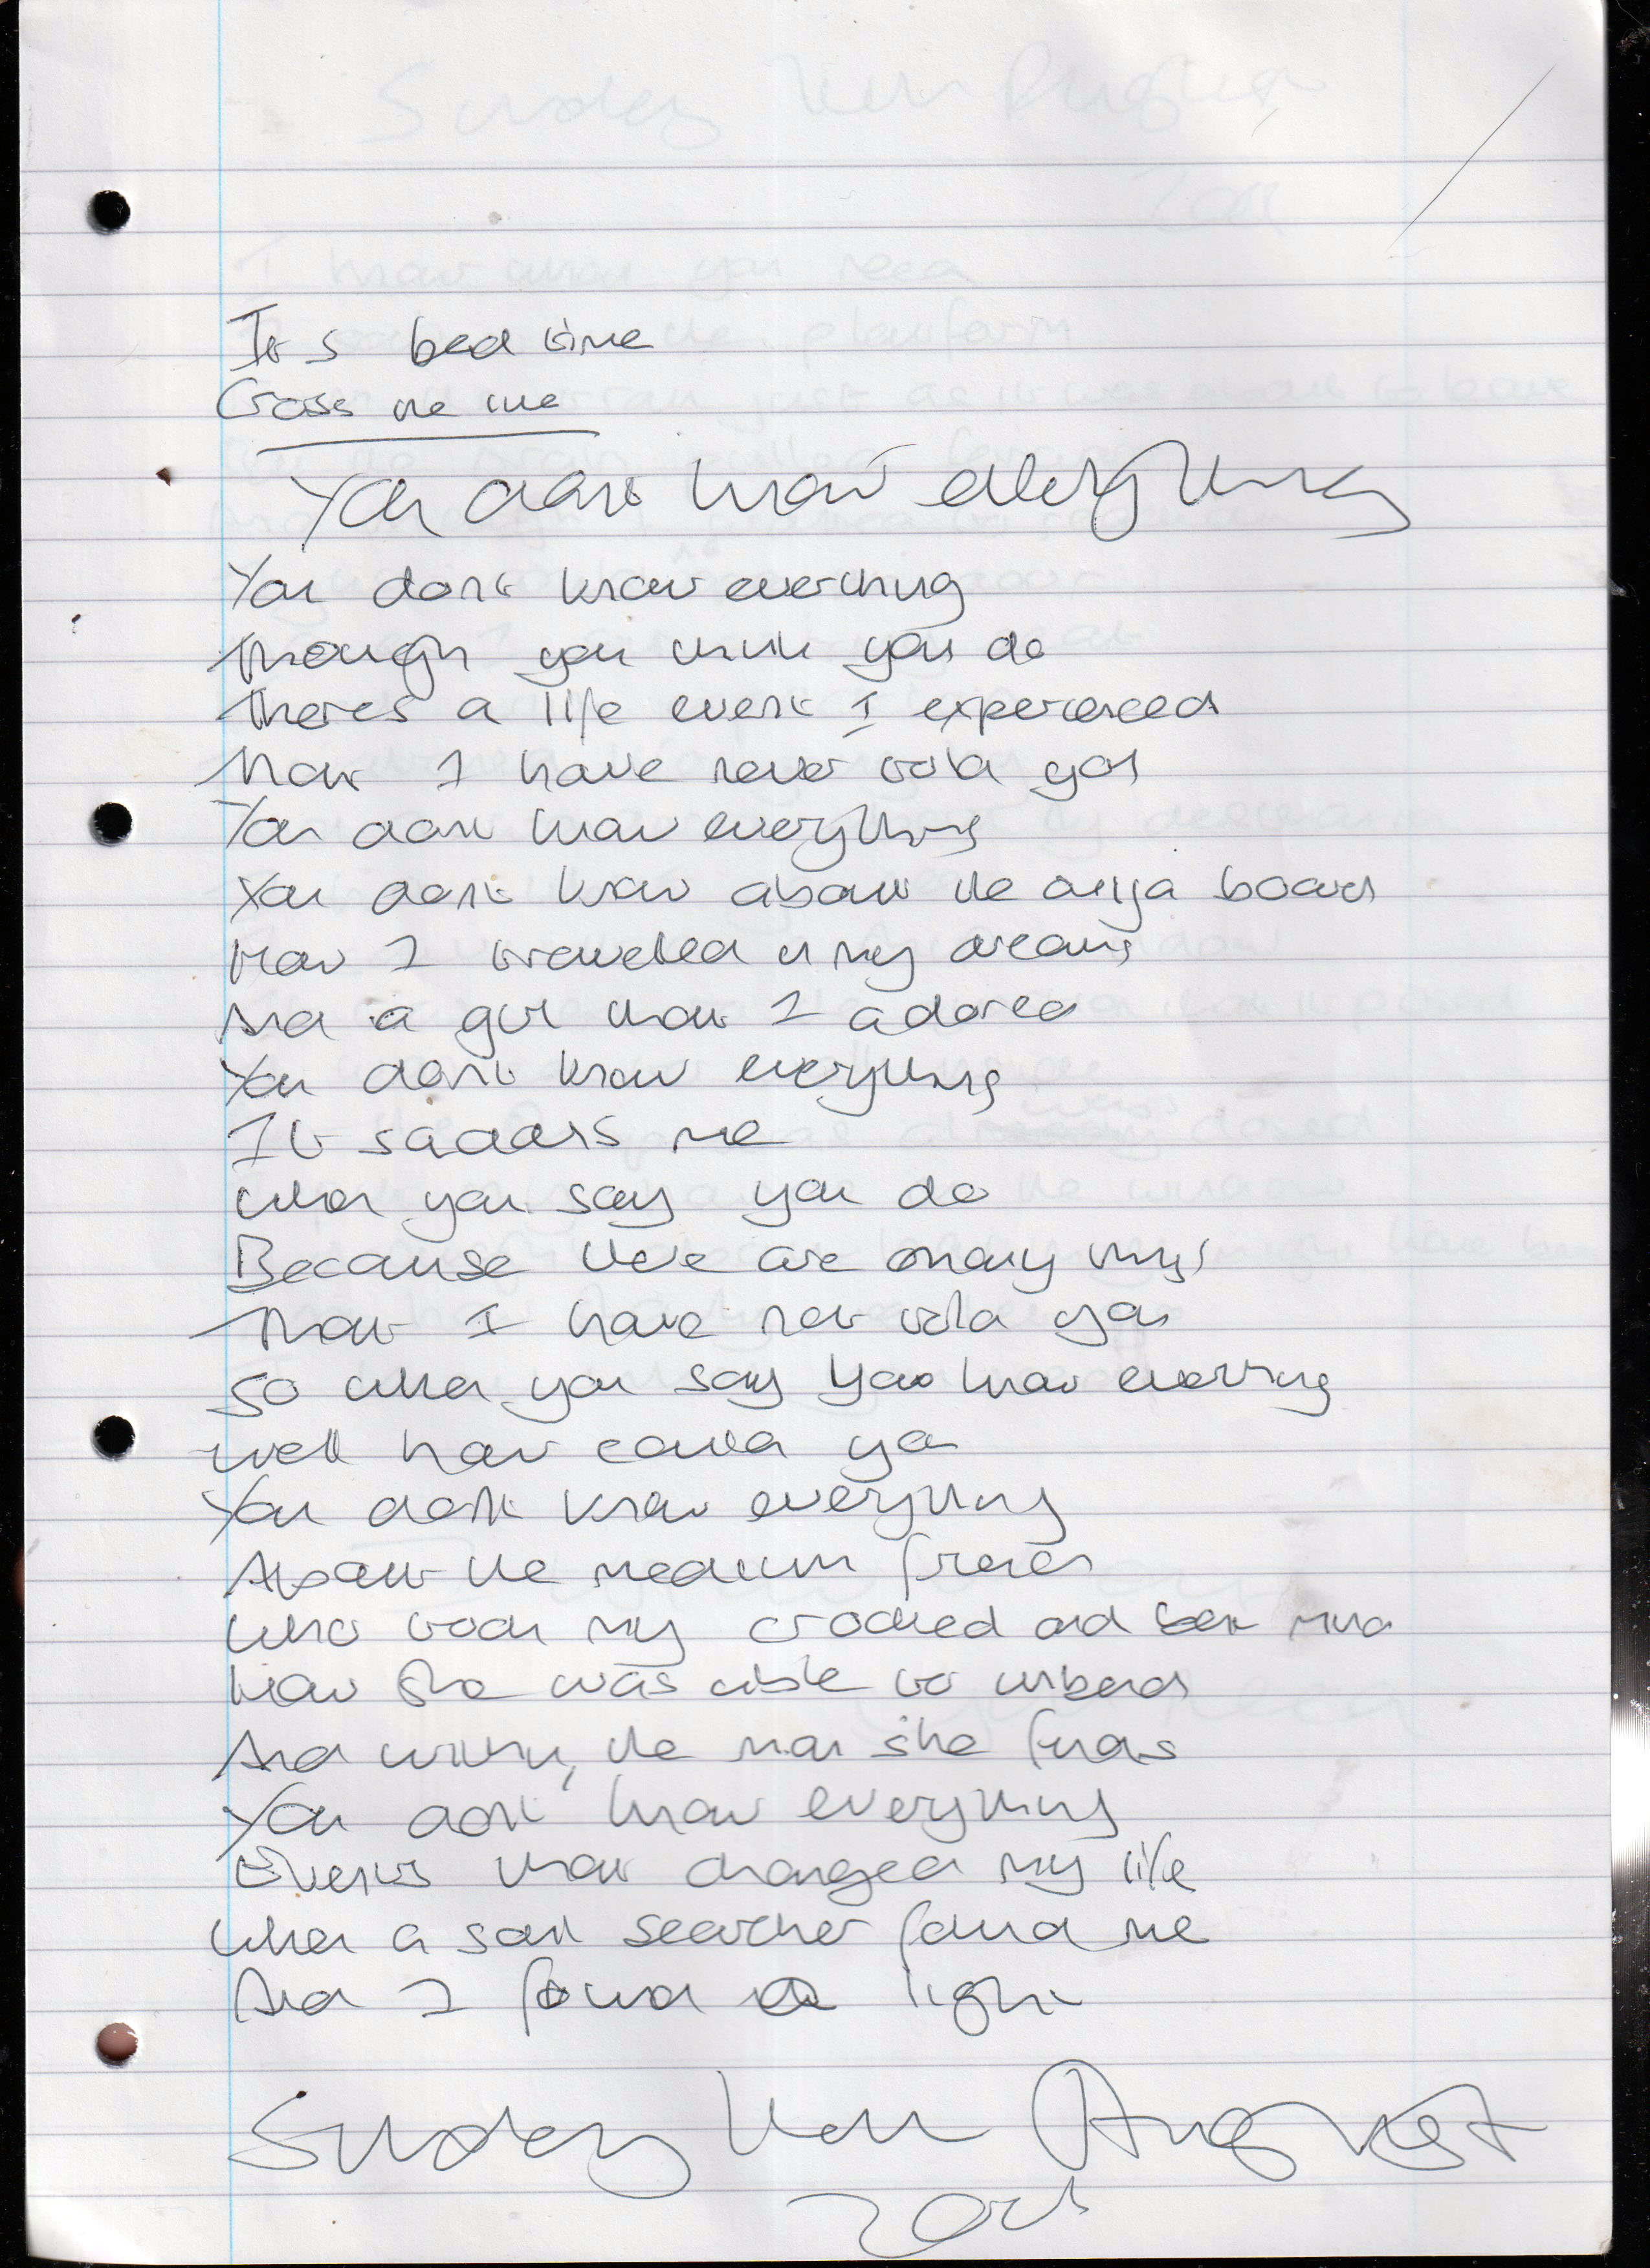 Its bed time
Cross me me
You dont know everything
You dont know everthing
though you think you do
theres a life event I experenced
that I have never told you
You dont know everything
You dont know about the ouija board
How I travelled in my dreams
And a girl that I adored
You dont know everything
It saddens me
when you say you do
Because there are many things
that I have not told you
So when you say you know everthing
well how could you
You dont know everything
About the medium friend
who took my crooked and bent mind
How she was able to unbend
And within, the man she finds
You dont know everything
Events that changed my life
when a soul searcher found me
And I found a light
Sunday 14th August